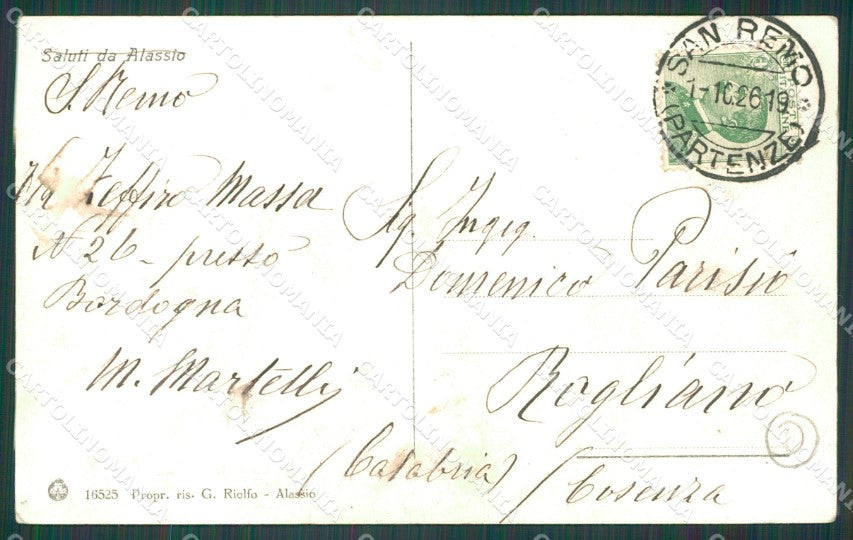 Saluti da Alassio
S. Remo
Via Zeffiro Massa
N 26 - presso
Bordogna
M. Martelli
SAN REMO
1-10.26 19
(PARTENZE)
Sig. Ingeg.
Domenico Parisio
Rogliano
(Calabria) (Cosenza
16525 Propr. ris. G. Riolfo - Alassio
CARTOLINOMANIA